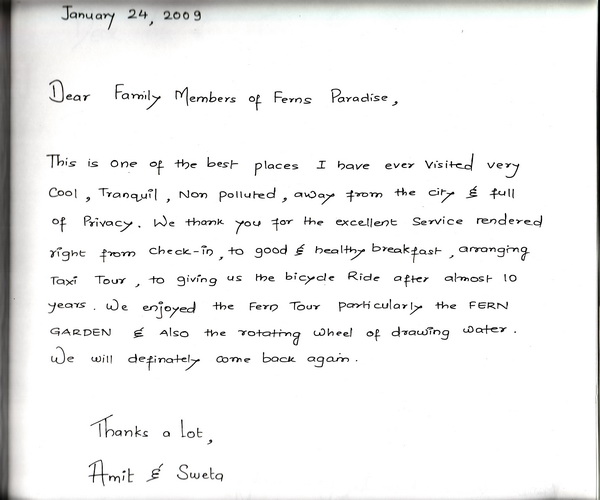 January 24, 2009
Dear Family Members of Ferns Paradise,
This is one of the best places I have ever visited very
Cool, Tranquil, Non polluted, away from the city & full
of Privacy. We thank you for the excellent Service rendered
right from check-in, to good & healthy breakfast, arranging
Taxi Tour, to giving us the bicycle Ride after almost 10
years. We enjoyed the Fern Tour particularly the FERN
GARDEN & Also the rotating wheel of drawing water.
We will definately come back again.
Thanks a lot,
Amit & Sweta